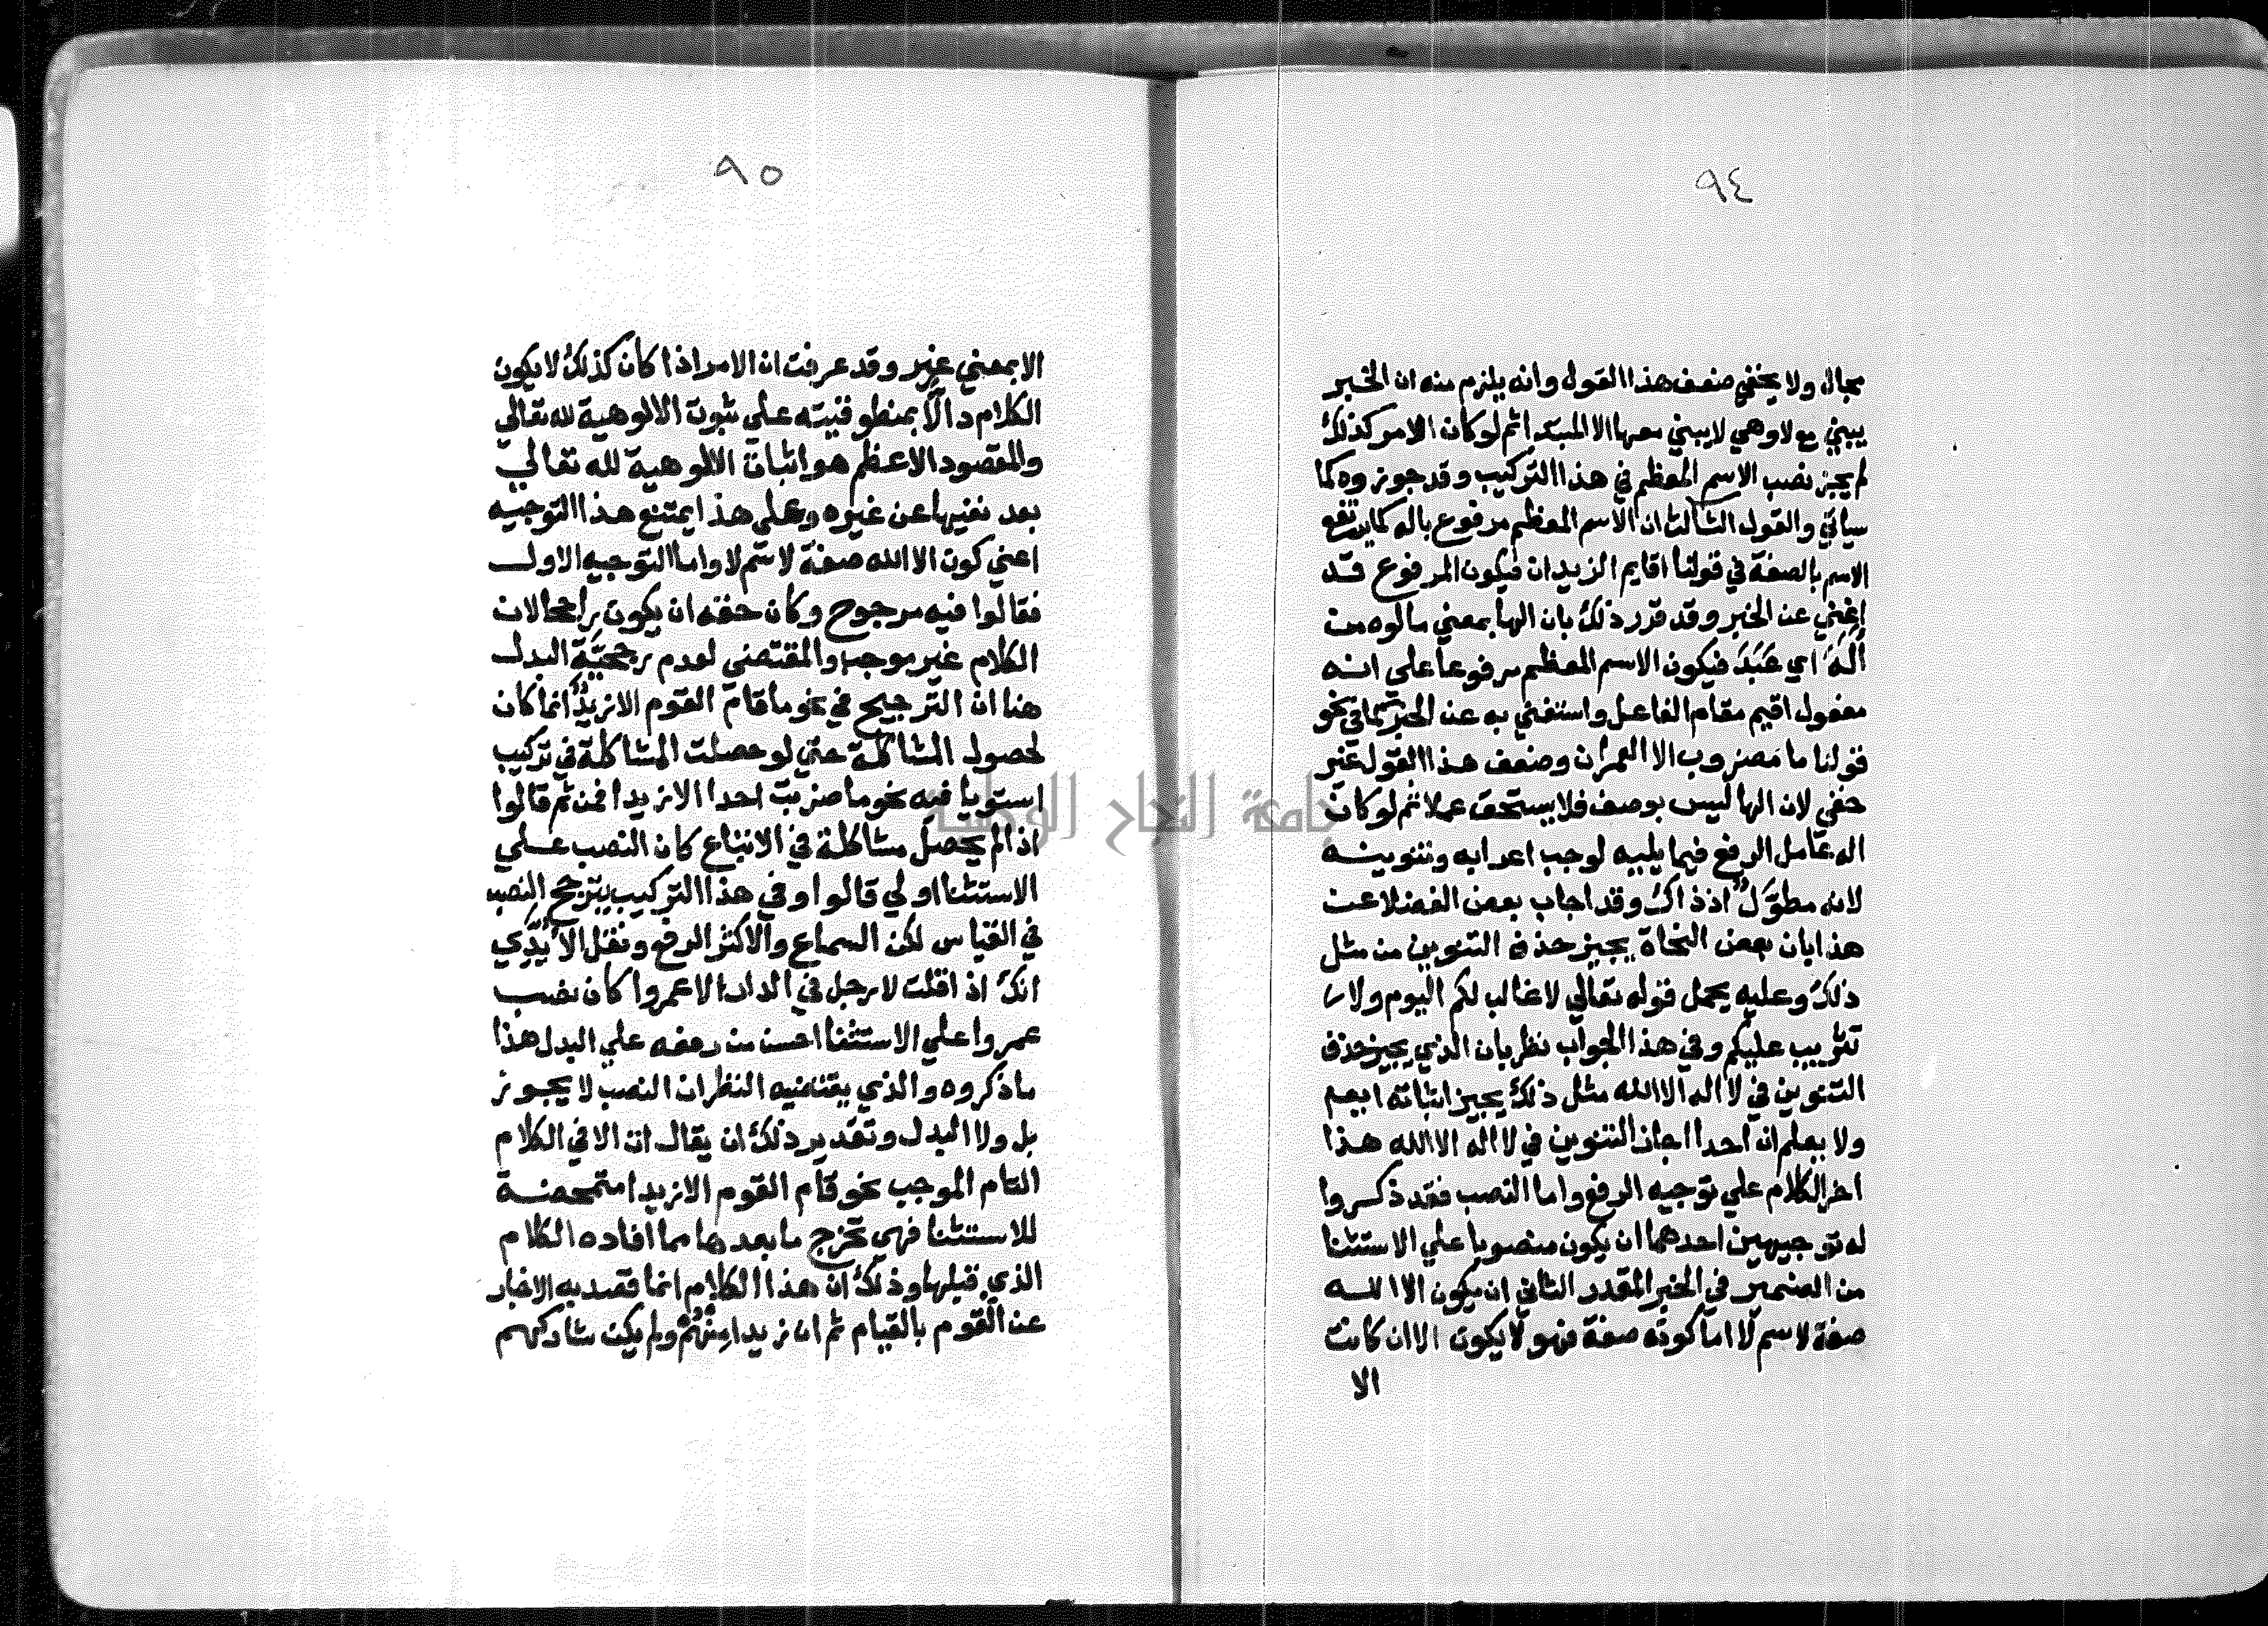 ٩٤
مجال ولا يخفي ضعف هذا القول وانه يلزم منه ان الخبر
يبني مع لا وهي لا يبني معها الا المبتدا ثم لو كان الامر كذلك
لم يجز نصب الاسم المعظم في هذا التركيب وقد جوزوه كما
سياتي والقول الثالث ان الاسم المعظم مرفوع باله كما يرتفع
الاسم بالصفة في قولنا اقايم الزيدان فيكون المرفوع قد
اغني عن الخبر وقد قرر ذلك بان الها بمعني مالوه من
أَلَهَ اي عَبَدَ فيكون الاسم المعظم مرفوعا علي انه
مفعول اقيم مقام الفاعل واستغني به عن الخبر كما في نحو
قولنا ما مضروب الا العمران وضعف هذا القول غير
خفي لان الها ليس بوصف فلا يستحق عملا ثم لو كان
اله عامل الرفع فيما يليه لوجب اعرابه وتنوينه
لانه مطوّل اذ ذاك وقد اجاب بعض الفضلا عن
هذا بان بعض النحاة يجيز حذف التنوين من مثل
ذلك وعليه يحمل قوله تعالي لا غالب لكم اليوم ولا
تثريب عليكم وفي هذا الجواب نظر بان الذي يجيز حذف
التنوين في لا اله الا الله مثل ذلك يجيز اثباته ايضا
ولا يعلم ان احدا اجاز التنوين في لا اله الا الله هذا
اخر الكلام علي توجيه الرفع واما النصب فقد ذكروا
له توجيهين احدهما ان يكون منصوبا علي الاستثنا
من الضمير في الخبر المقدر الثاني ان يكون الا الله
صفة لاسم لا اما كونه صفة فهو لا يكون الا ان كانت
الا
٩٥
الا بمعني غير وقد عرفت ان الامر اذا كان كذلك لا يكون
الكلام دالا بمنطوقيته علي ثبوت الالوهية لله تعالي
والمقصود الاعظم هو اثبات الالوهية لله تعالي
بعد نفيها عن غيره وعلي هذا يمتنع هذا التوجيه
اعني كون الا الله صفة لاسم لا واما التوجيه الاول
فقالوا فيه مرجوح وكان حقه ان يكون راجحا لان
الكلام غير موجب والمقتضي لعدم رجحيّة البدل
هنا ان الترجيح في نحو ما قام القوم الا زيدٌ انما كان
لحصول المشاكلة حتي لو حصلت المشاكلة في تركيب
استويا فيه نحو ما ضربت احدا الا زيدا فمن ثم قالوا
اذا لم يحصل مشاكلة في الاتباع كان النصب علي
الاستثنا اولي قالوا وفي هذا التركيب يترجح النصب
في القياس لكن السماع والاكثر الرفع ونقل الأُبَّدِي
انك اذا قلت لا رجل في الدار الا عمروا كان نصب
عمروا علي الاستثنا احسن من رفعه علي البدل هذا
ما ذكروه والذي يقتضيه النظر ان النصب لا يجوز
بل ولا البدل وتقدير ذلك ان يقال ان الا في الكلام
التام الموجب نحو قام القوم الا زيدا متمحضة
للاستثنا فهي تخرج ما بعدها مما افاده الكلام
الذي قبلها وذلك ان هذا الكلام انما قصد به الاخبار
عن القوم بالقيام ثم ان زيدا منهم ولم يكن شاركهم
جامعة النجاح الوطنية